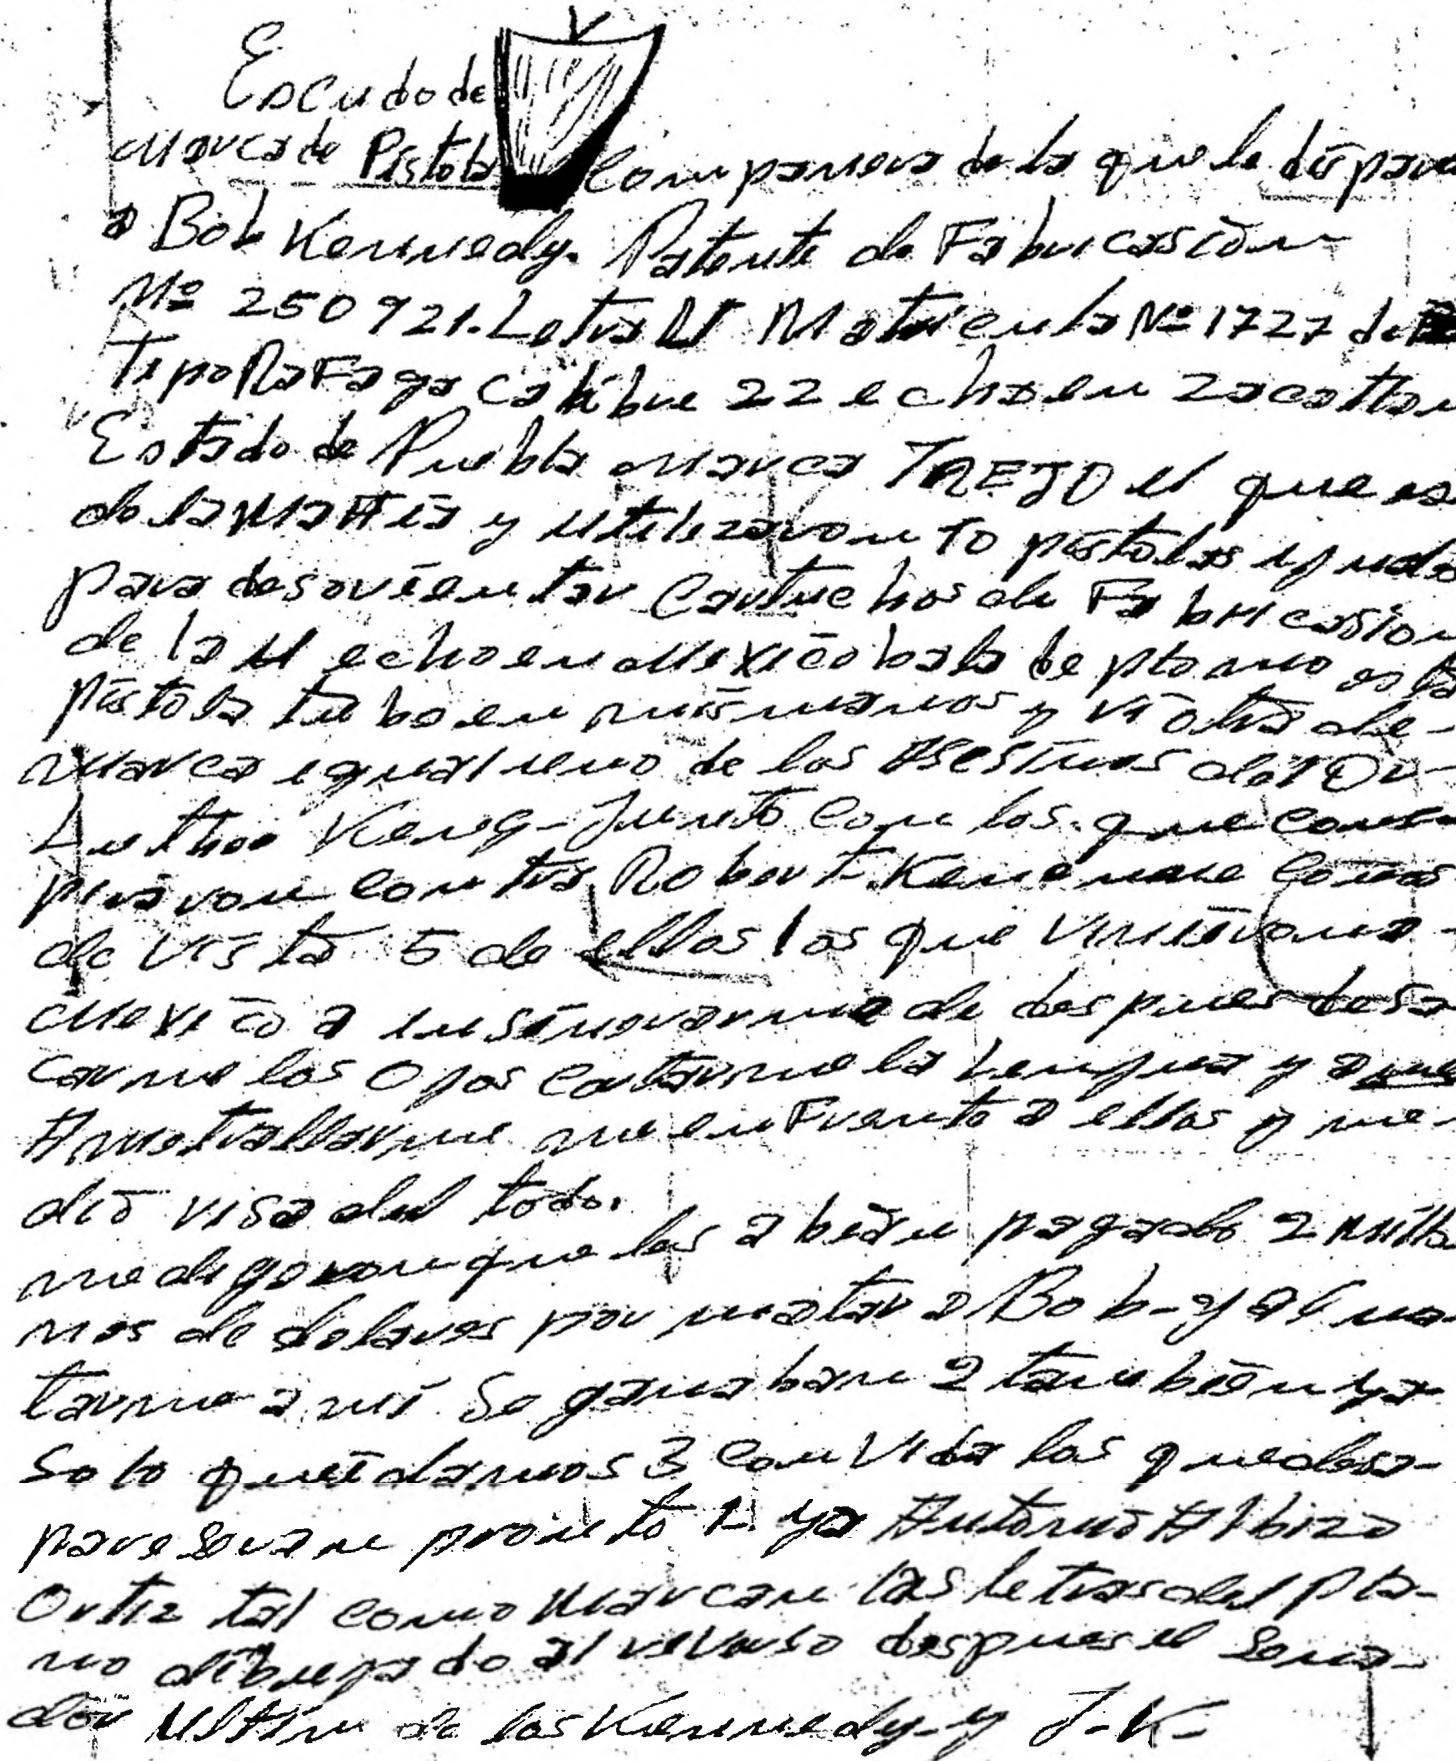 Escudo de
Marca de Pistola Companera de la que le dispara
a Bob Kennedy. Patente de Fabricasión
Nº 250921. Letra Matricula Nº 1727 de
tipo Rafaga calibre 22 echa en Zacatlan
Estado de Puebla marca TREJO el que es
de la Maffia y utilizaron 10 pistolas
para desorientar Cartuchos de Fabricasion
de la M echo en Mexico bala de plomo esta
pistola tube en mis manos y vi otra de-
marca igual uno de los Asesinos del Dr-
Luther King- Junto con los que cons
piraron contra Robert Kene
de vista 5 de ellos los que vinieron a-
Mexico a de despues de sa
carme los Ojos cortarme la Lengua y a
Ametrallarme me enfrento a ellos y me-
dió visa del todo.
me digeron que les abian pagado 2 millo
nes de dolares por matar a Bob- y al ma-
tarme a mi Se ganaban 2 tambien ya-
Solo quedamos 3 con Vida los que desa-
pareseran pronto 1- ya Antonio Albiza
Ortiz tal como Marcan las letras del pla-
no dibujado al reverso despues el Sena-
dor Ultim de los Kennedy- y J-K-